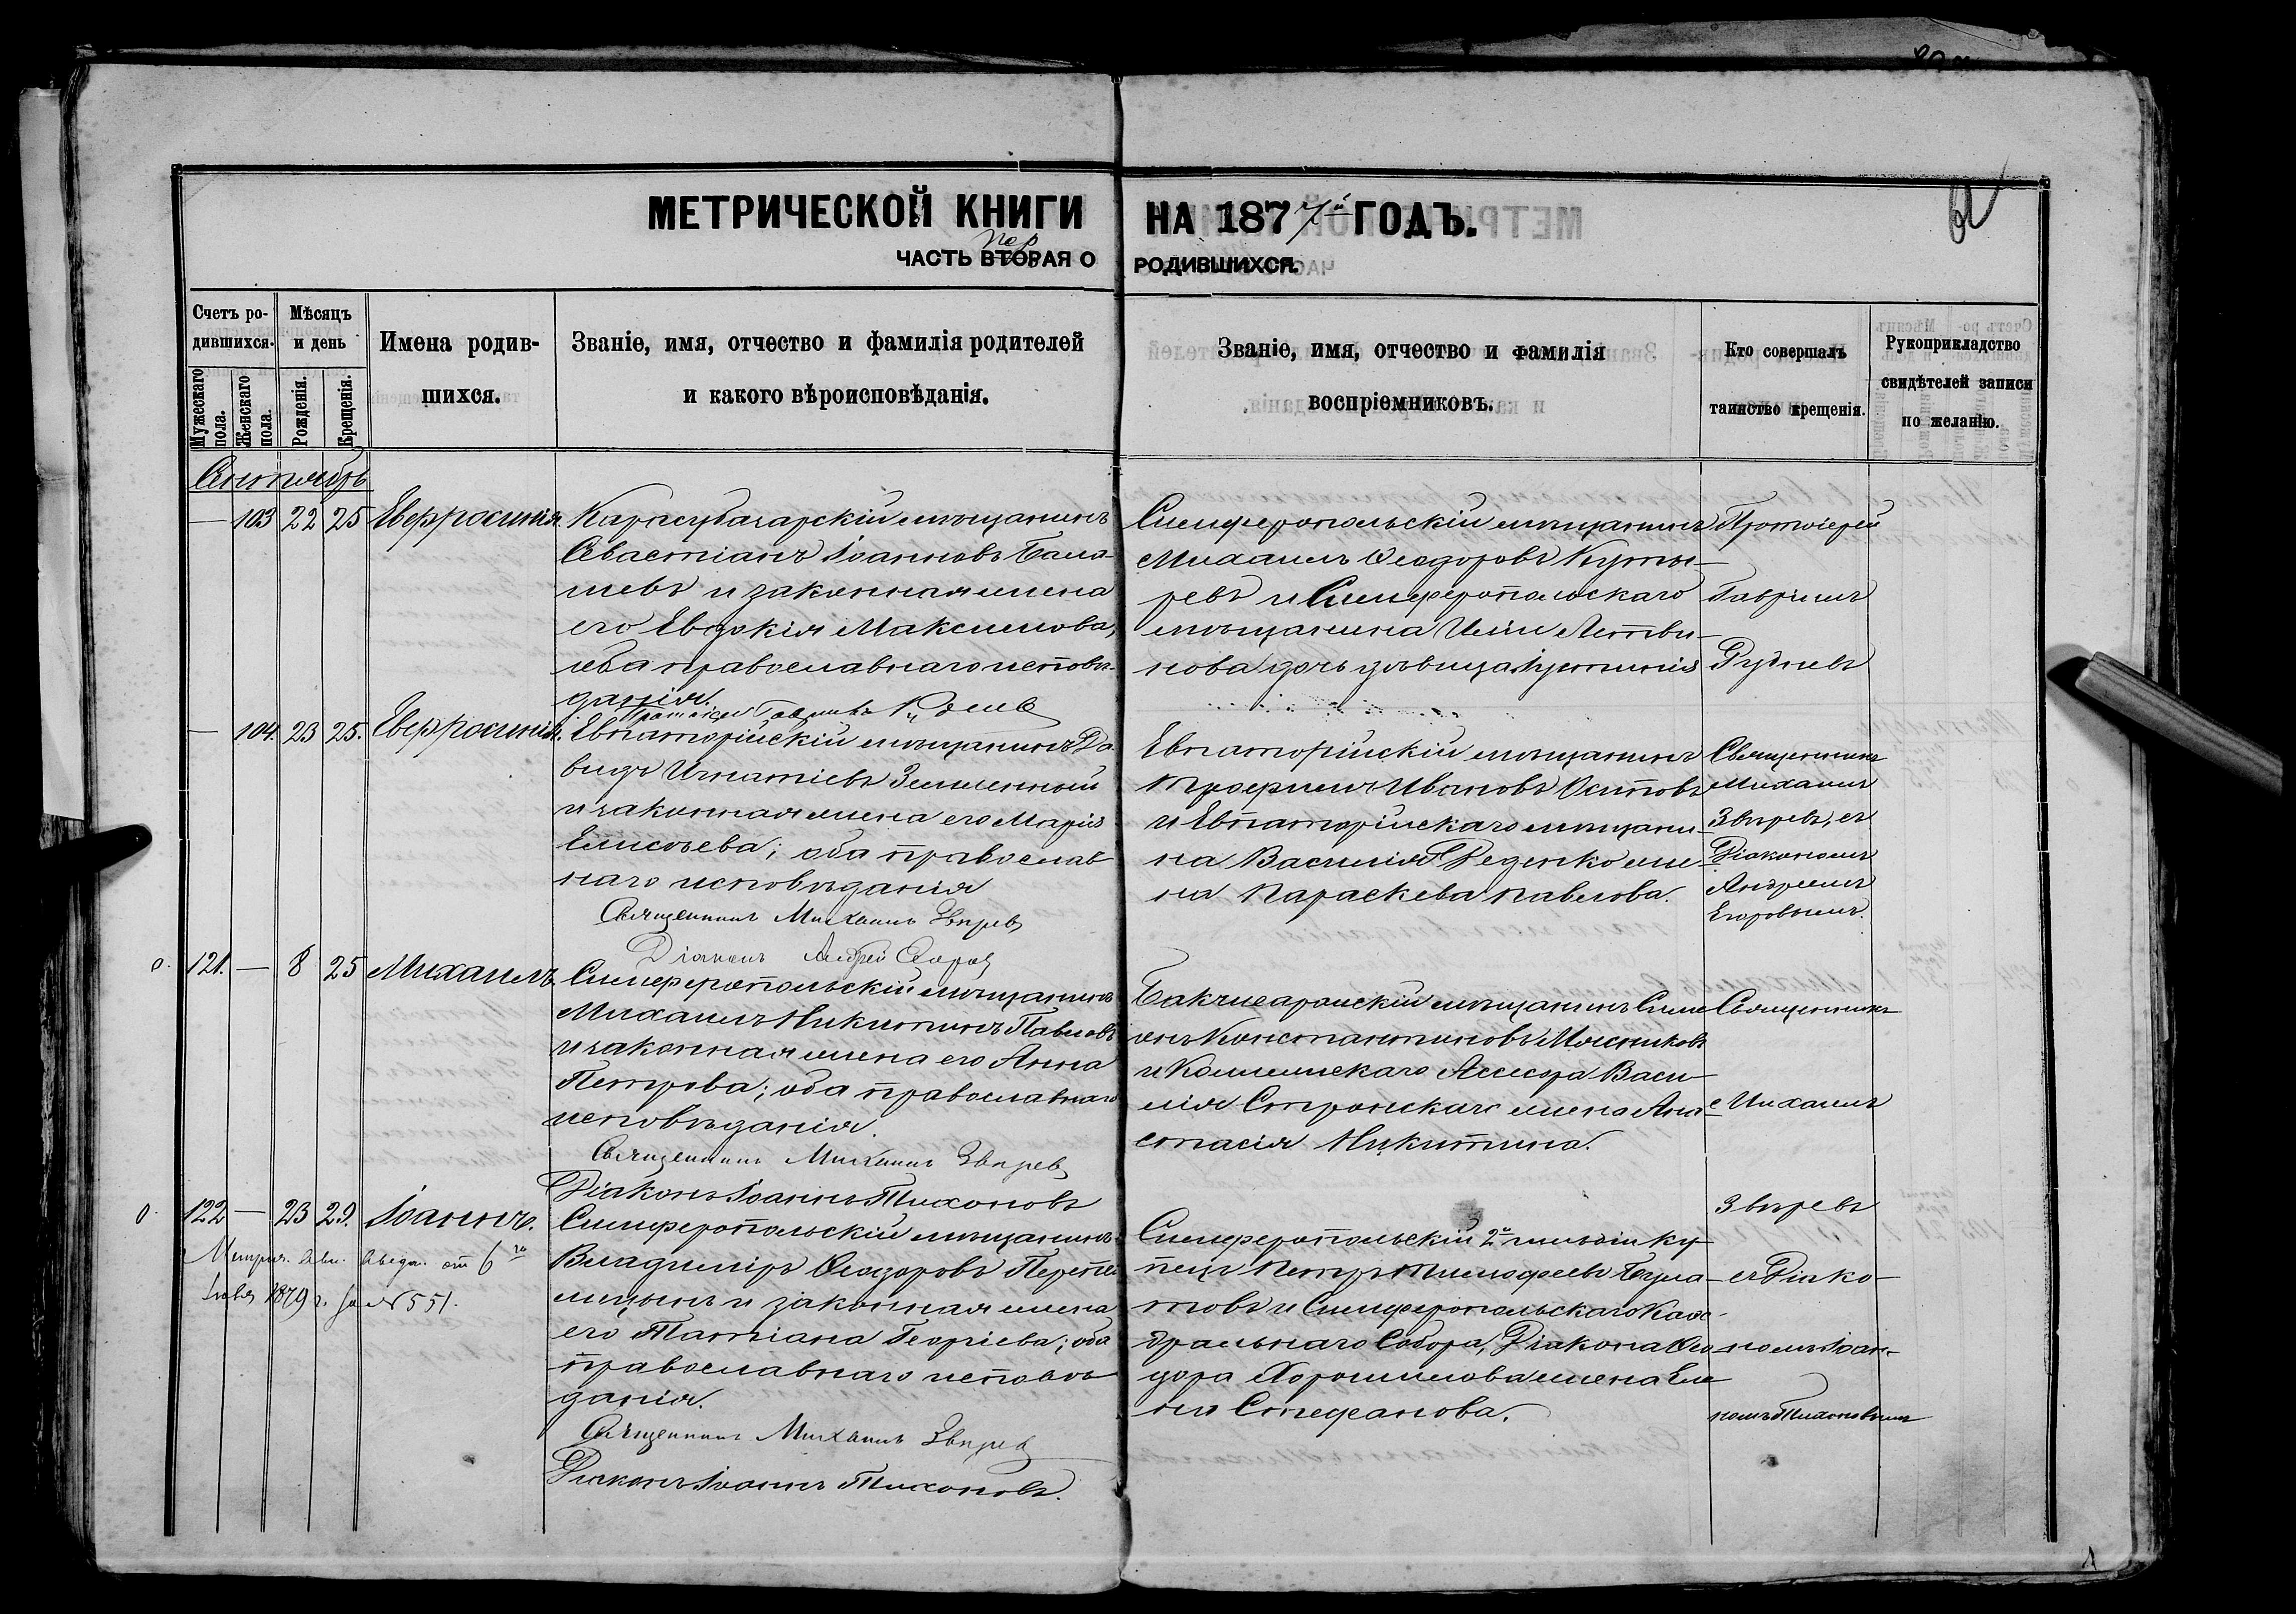 МЕТРИЧЕСКОЙ КНИГИ НА 1877й ГОДЪ.
пер
ЧАСТЬ ВТОРАЯ О РОДИВШИХСЯ.
Счетъ родившихся.
Мужескаго пола.
Женскаго пола.
Мѣсяцъ и день
Рожденія.
Крещенія.
Имена родив-
шихся.
Званіе, имя, отчество и фамилія родителей
и какого вѣроисповѣданія.
Званіе, имя, отчество и фамилія
воспріемниковъ.
Кто совершалъ
таинство крещенія.
Рукоприкладство
свидѣтелей записи
по желанію.
Сентябрь
— 103 22 25 Евфросинія
Карасубазарскій мѣщанинъ
Севастіанъ Іоанновъ
и законная жена
его Евдокія Максимова,
оба православнаго исповѣ-
данія.
Протоіерей Гавріилъ Рудневъ
Симферопольскій мѣщанинъ
Михаилъ Ѳеодоровъ Куты-
ревъ и Симферопольскаго
мѣщанина Литви-
нова дочь дѣвица Іустинія
Протоіерей
Гавріилъ
Рудневъ
— 104. 23 25. Евфросинія.
Евпаторійскій мѣщанинъ Да-
видъ Игнатіевъ
и законная жена его Марія
Елисѣева; оба православ-
наго исповѣданія
Священникъ Михаилъ Звѣревъ
Діаконъ Андрей
Евпаторійскій мѣщанинъ
Трофимъ Ивановъ Осиповъ
и Евпаторійскаго мѣщани-
на Василія Деденко же-
на Параскева Павлова.
Священникъ
Михаилъ
Звѣревъ, съ
Діакономъ
Андреемъ
Егоровымъ.
о. 121. — 8 25 Михаилъ
Симферопольскій мѣщанинъ
Михаилъ Никитинъ Павловъ
и законная жена его Анна
Петрова; оба православнаго
исповѣданія.
Священникъ Михаилъ Звѣревъ
Діаконъ Іоаннъ Тихоновъ
Бакчисарайскій мѣщанинъ Симе
онъ Константиновъ Мясниковъ
и Коллежскаго Асессора Васи-
лія Стронскаго жена Ана-
стасія Никитина.
Священникъ
Михаилъ
Звѣревъ
о. 122 — 23 29. Іоаннъ.
Метрич. свид. выдан. от 6го
1879 г. за № 551.
Симферопольскій мѣщанинъ
Владиміръ Ѳеодоровъ
и законная жена
его Татіана Георгіева; оба
православнаго исповѣ
данія.
Священникъ Михаилъ Звѣревъ
Діаконъ Іоаннъ Тихоновъ.
Симферопольскій 2й гильдіи ку
пецъ Петръ Тимофеевъ Була-
товъ и Симферопольскаго Каѳе-
дральнаго Собора, Діакона Ѳео-
дора Хорошилова жена Еле
на Стефанова.
съ Діако-
номъ Іоан-
номъ Тихоновымъ